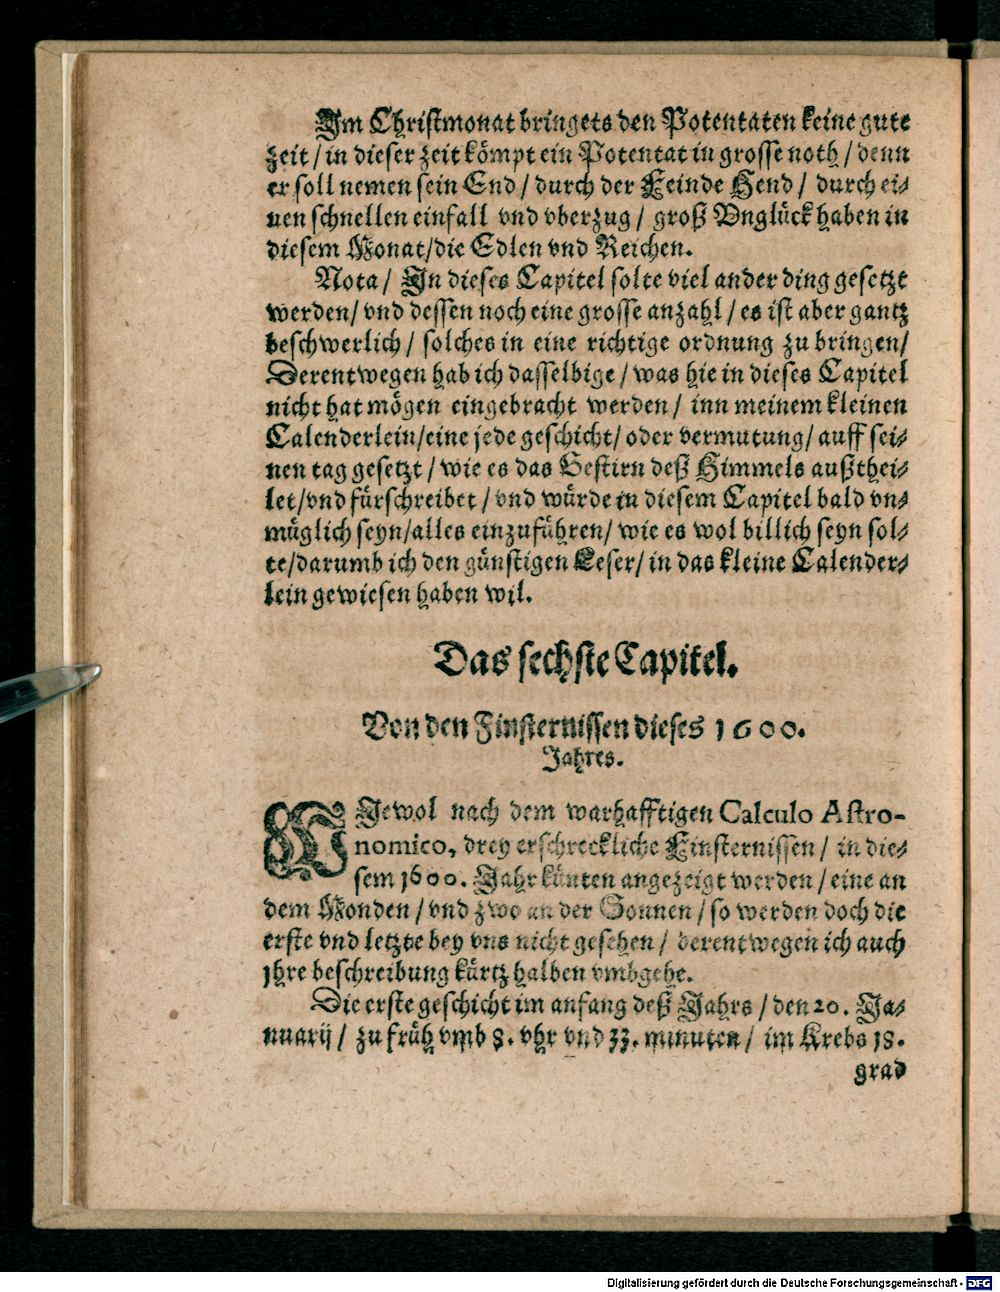 Im Christmonat bringets den Potentaten keine gute
zeit / in dieser zeit kömpt ein Potentat in grosse noth / denn
er soll nemen sein End / durch der Feinde Hend / durch ei⸗
nen schnellen einfall vnd vberzug / groß Vnglück haben in
diesem Monat/die Edlen vnd Reichen.
Nota / In dieses Capitel solte viel ander ding gesetzt
werden/ vnd dessen noch eine grosse anzahl / es ist aber gantz
beschwerlich / solches in eine richtige ordnung zu bringen/
Derentwegen hab ich dasselbige / was hie in dieses Capitel
nicht hat mögen eingebracht werden / inn meinem kleinen
Calenderlein/eine jede geschicht/ oder vermutung/ auff sei⸗
nen tag gesetzt / wie es das Gestirn deß Himmels außthei⸗
let/vnd fürschreibet / vnd würde in diesem Capitel bald vn⸗
müglich seyn/alles einzuführen/ wie es wol billich seyn sol⸗
te/darumb ich den günstigen Leser/ in das kleine Calender⸗
lein gewiesen haben wil.
Das sechste Capitel.
Von den Finsternissen dieses 1600.
Jahres.
WIewol nach dem warhafftigen Calculo Astro-
nomico, drey erschreckliche Finsternissen / in die⸗
sem 1600. Jahr künten angezeigt werden / eine an
dem Monden / vnd zwo an der Sonnen / so werden doch die
erste vnd letzte bey vns nicht gesehen / derentwegen ich auch
jhre beschreibung kürtz halben vmbgehe.
Die erste geschicht im anfang deß Jahrs / den 20. Ja⸗
nuarij / zu früh vmb 8. vhr vnd 33. minuten / im Krebs 18.
grad
Digitalisierung gefördert durch die Deutsche Forschungsgemeinschaft - DFG